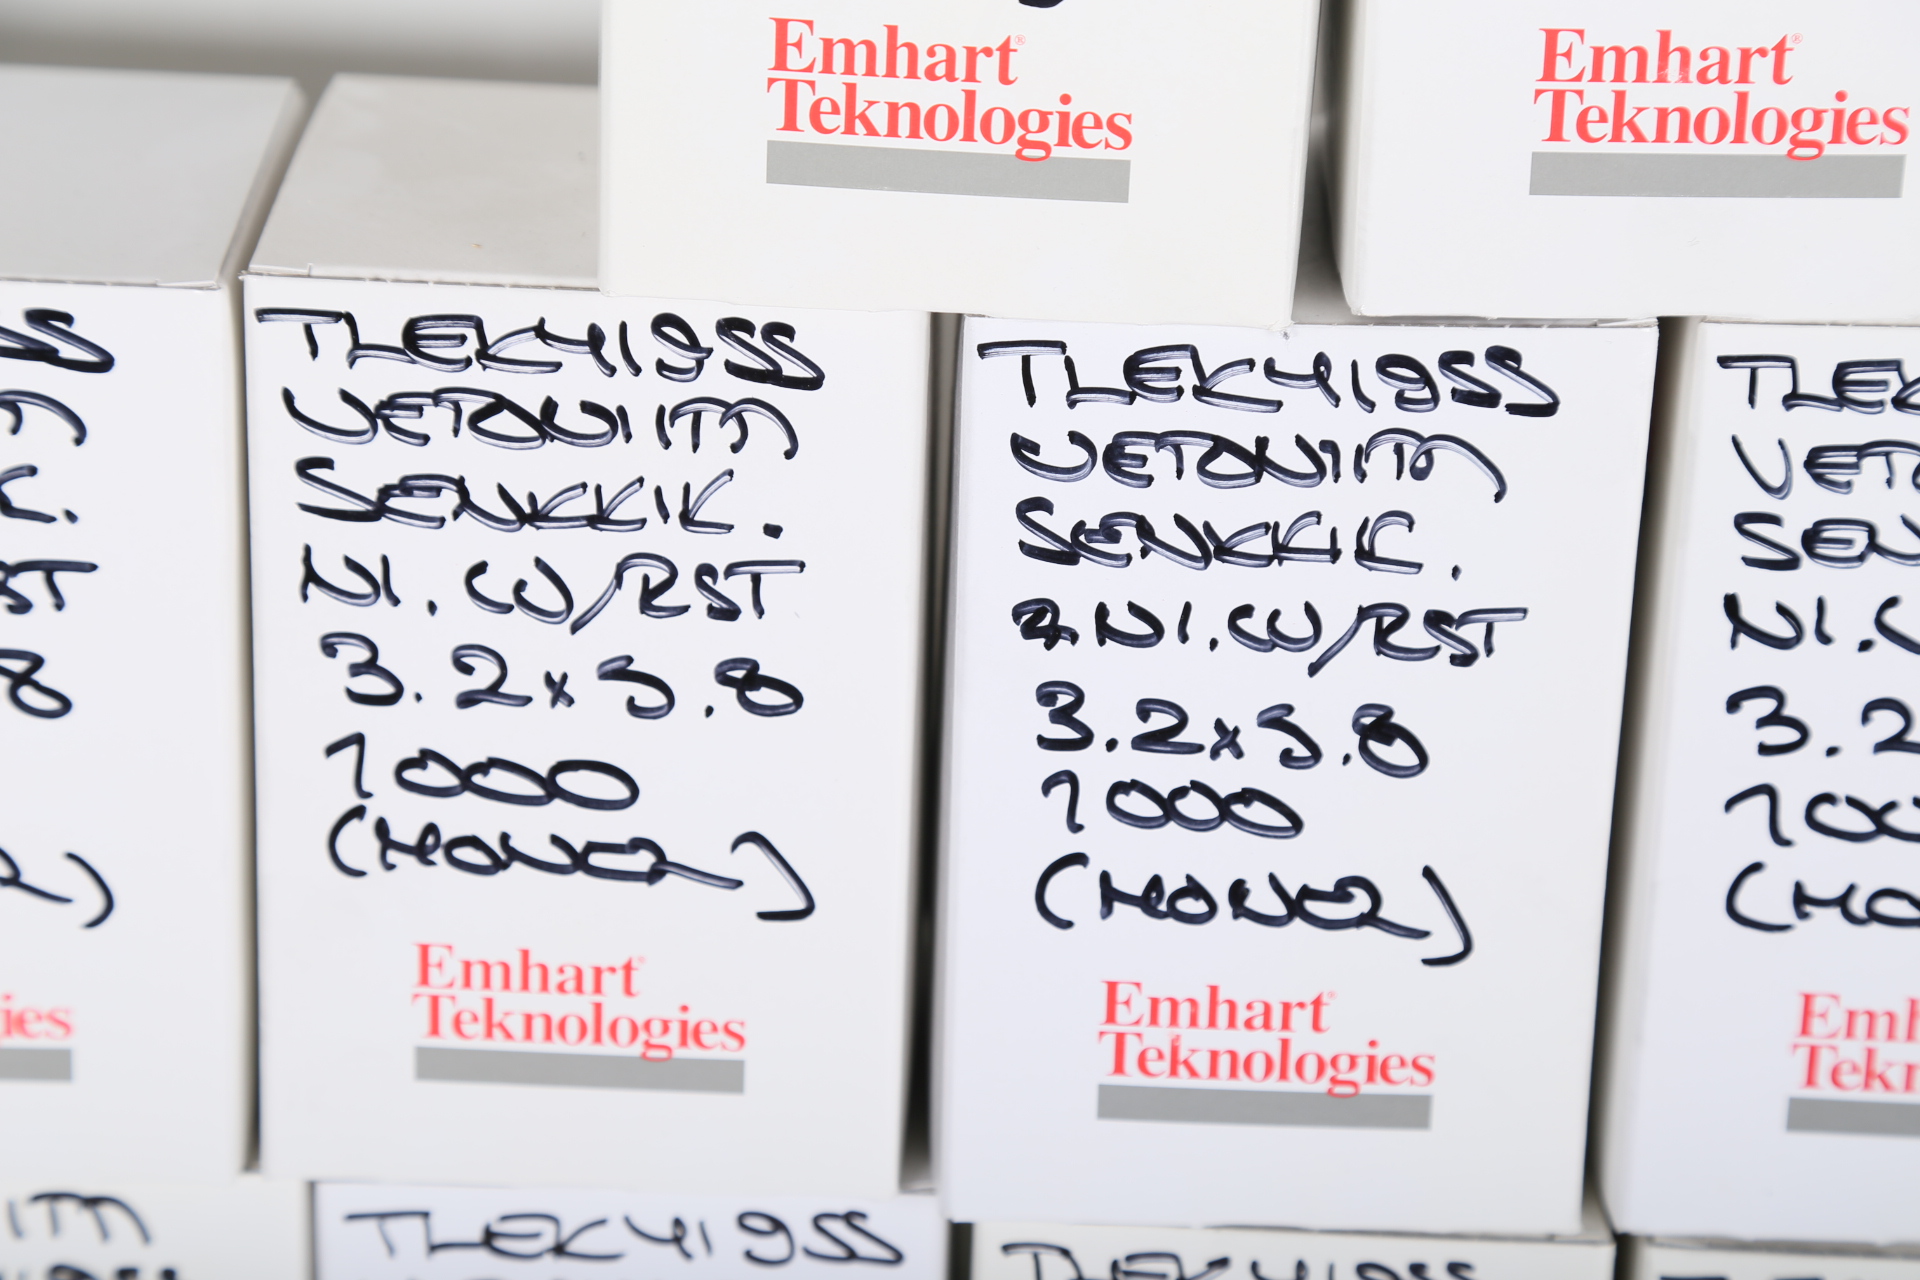 Emhart®
Teknologies
Emhart®
Teknologies
SS
K.
ST
8
)
ies
TLEK419SS
VETONIITTI
SENKKIK.
NI.CU/RST
3.2x5.8
1000
(MONEL)
Emhart®
Teknologies
TLEK419SS
VETONIITTI
SENKKIK.
NI.CU/RST
3.2x5.8
1000
(MONEL)
Emhart®
Teknologies
TLEK
VETO
SEN
NI.C
3.2
100
(MO
Emh
Tekn
TLEK419SS
TLEK419SS